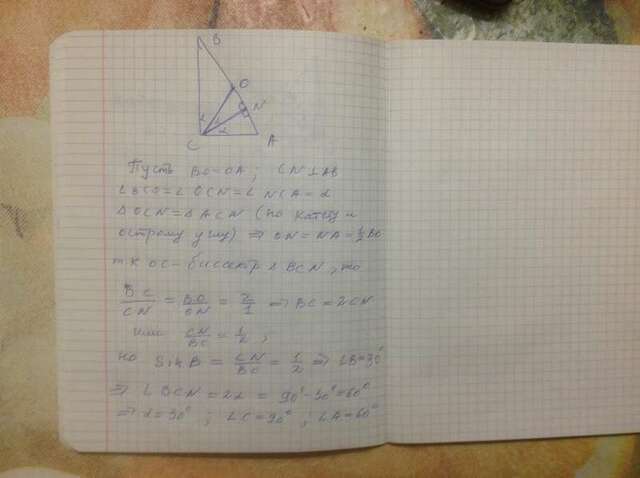 B
O
N
α
α
α
C
A
Пусть BO=OA; CN⊥AB
∠BCO=∠OCN=∠NCA=α
ΔOCN=ΔACN (по катету и
острому углу) ⇒ ON=NA=½BO
т.к OC-биссектр ∠BCN, то
BC/CN = BO/ON = 2/1 ⇒ BC=2CN
или CN/BC = 1/2,
но SinB = CN/BC = 1/2 ⇒ ∠B=30°
⇒ ∠BCN=2α = 90°-30°=60°
⇒ α=30°; ∠C=90°; ∠A=60°